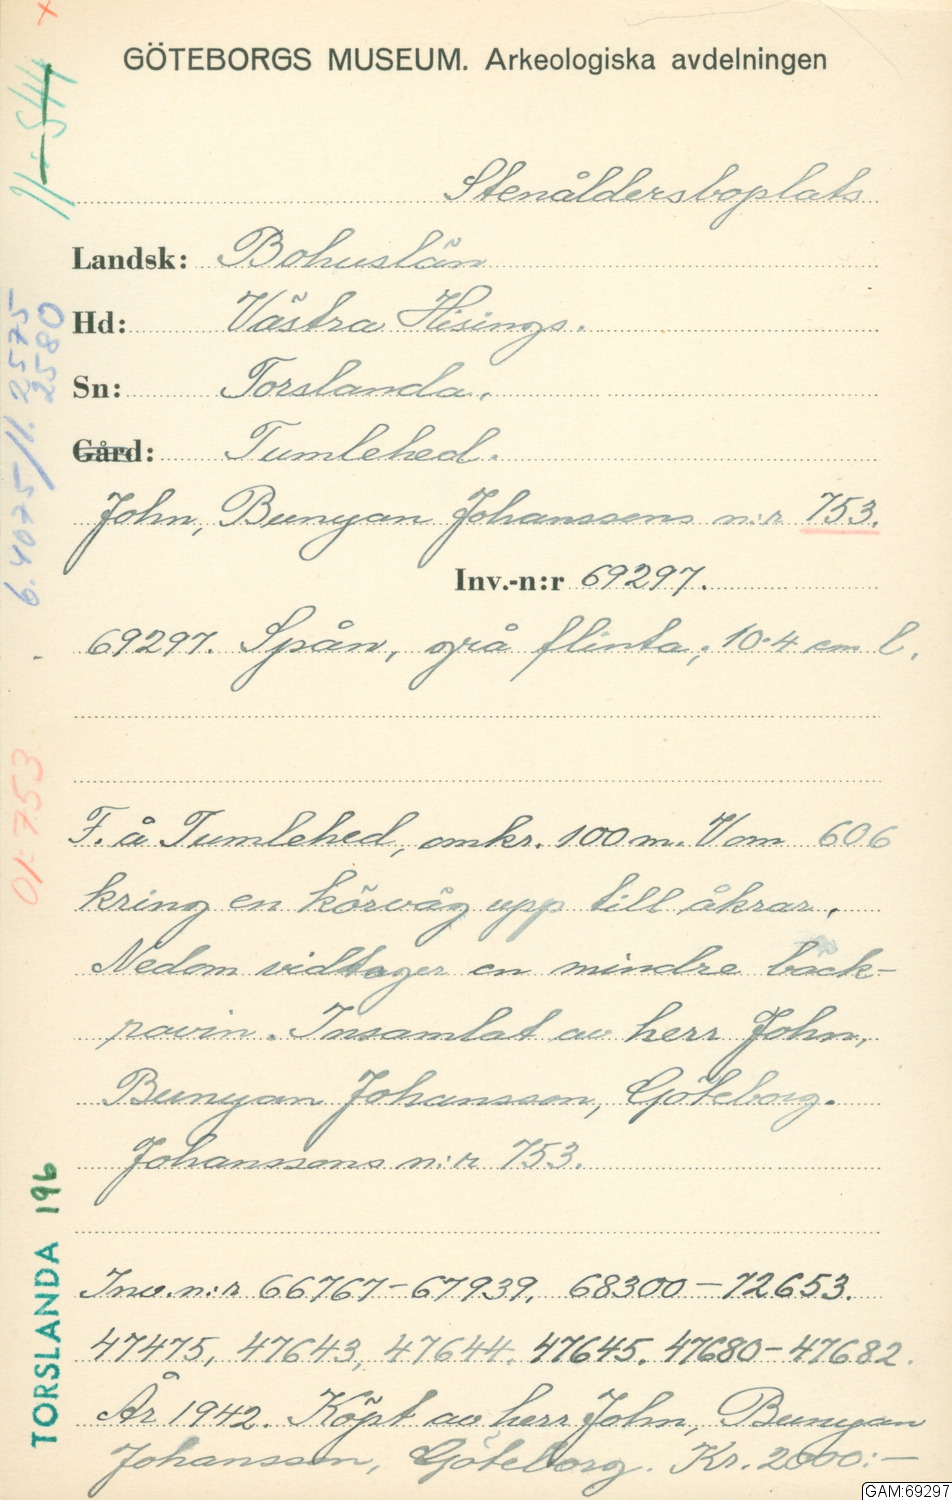 GÖTEBORGS MUSEUM. Arkeologiska avdelningen
Stenåldersboplats
Landsk: Bohuslän
Hd: Västra Hisings.
Sn: Torslanda.
Gård: Tumlehed.
John, Bunyan Johanssons n:r 753.
Inv.-n:r 69297.
69297. Spån, grå flinta; 10.4 cm l.
F. å Tumlehed, omkr. 100 m. V om 606
kring en körväg upp till åkrar.
Nedom vidtager en mindre bäck-
ravin. Insamlat av herr John,
Bunyan Johansson, Göteborg.
Johanssons n:r 753.
Inv.n:r 66767-67939. 68300-72653.
47475, 47643, 47644. 47645. 47680-47682.
År 1942. Köpt av herr John, Bunyan
Johansson, Göteborg. Kr. 2000:-
11-544
6.4075/11.2575
2580
01-753
TORSLANDA 196
GAM:69297